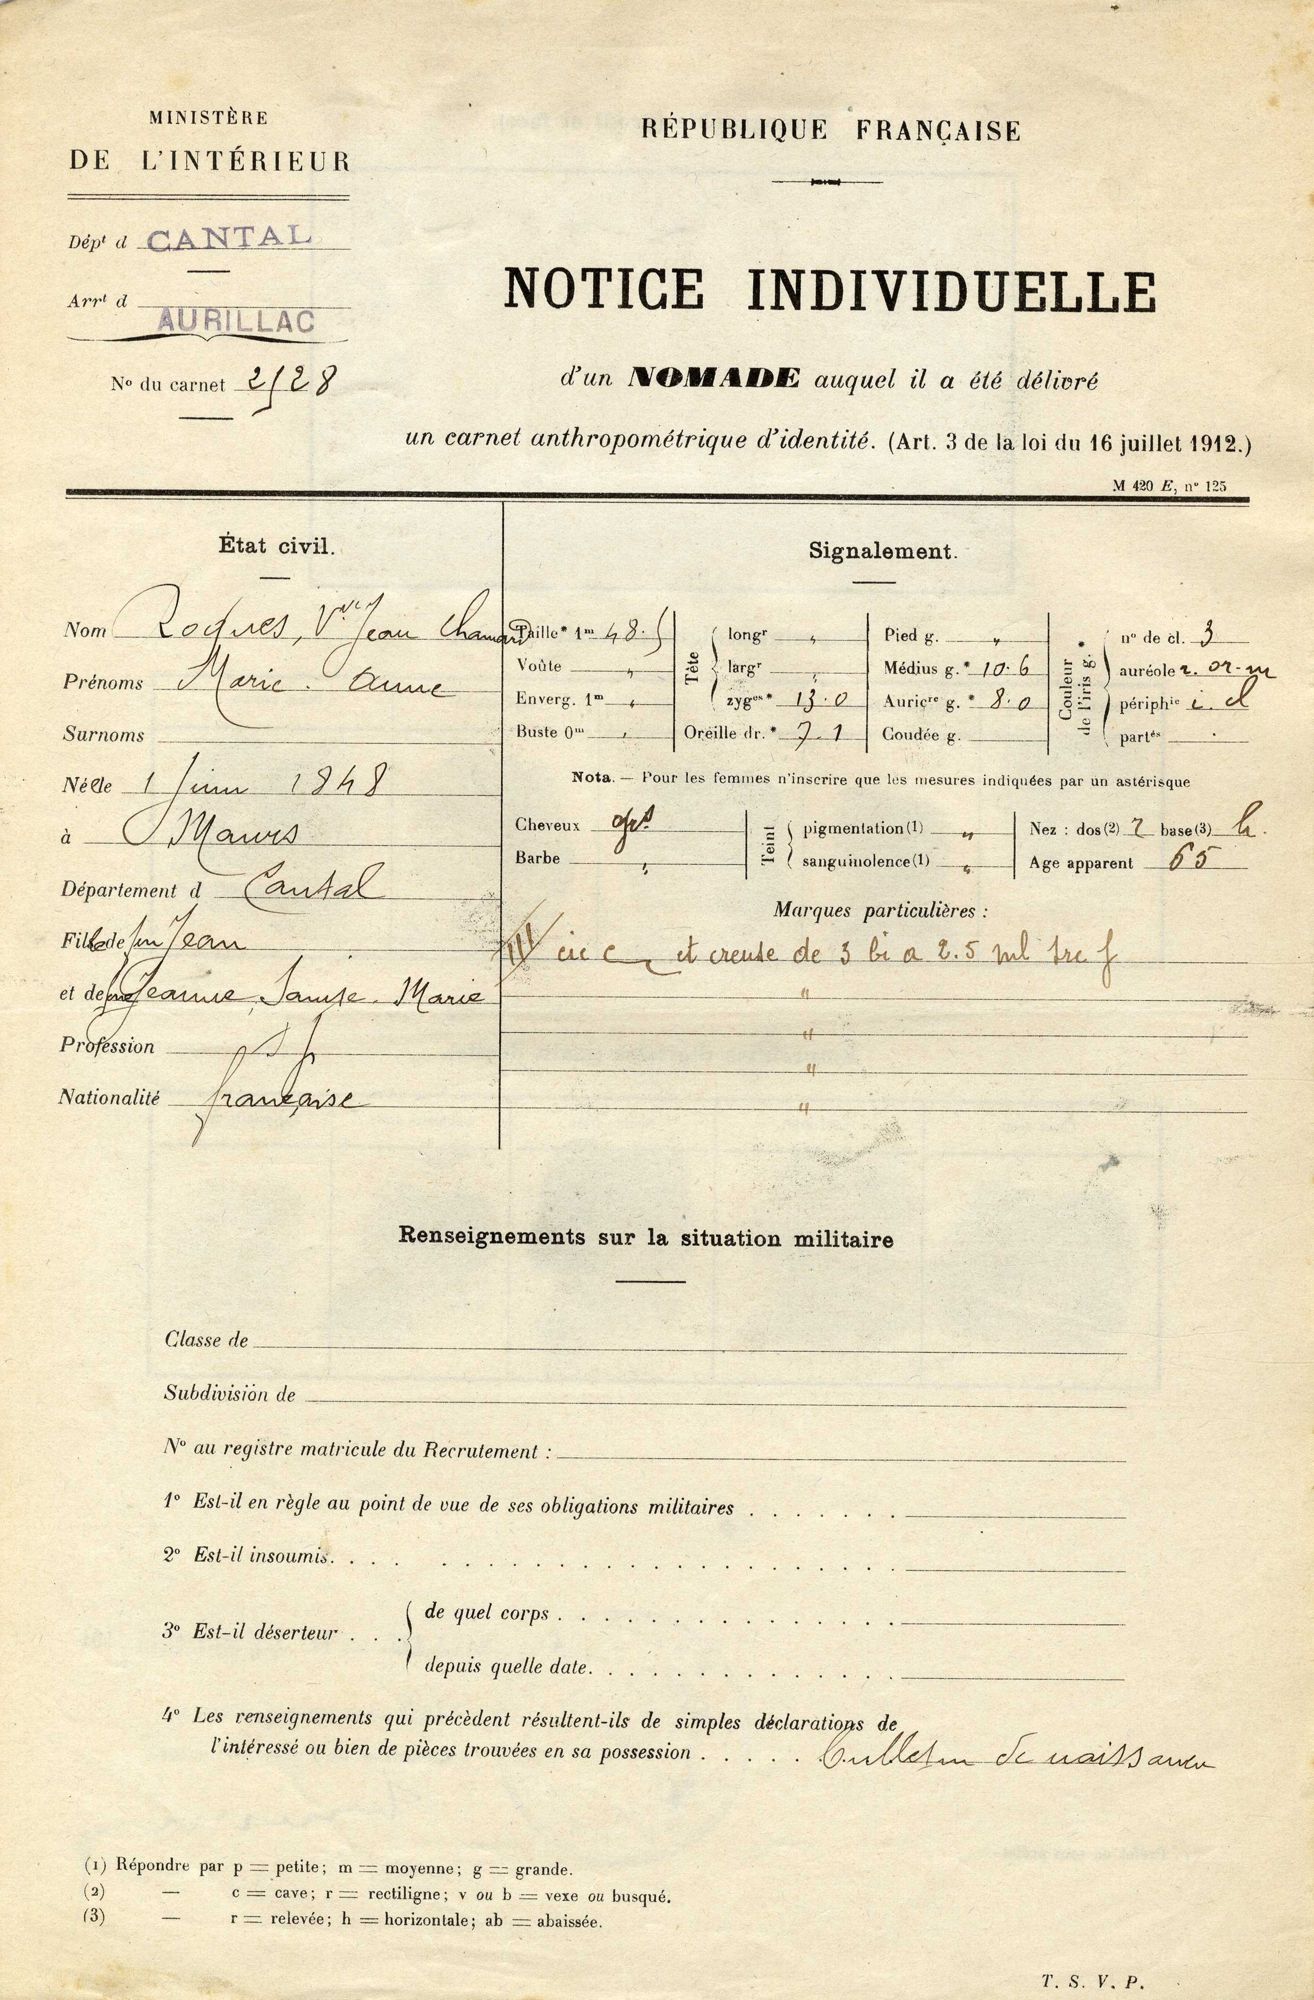 MINISTÈRE
DE L'INTÉRIEUR
RÉPUBLIQUE FRANÇAISE
Dépt d CANTAL
Arrt d AURILLAC
No du carnet 2528
NOTICE INDIVIDUELLE
d'un NOMADE auquel il a été délivré
un carnet anthropométrique d'identité. (Art. 3 de la loi du 16 juillet 1912.)
M 420 E, n° 125
État civil.
Nom Roques, Vve Jean Chamard
Prénoms Marie-Anne
Surnoms
Née le 1 Juin 1848
à Maurs
Département d Cantal
Fille de feu Jean
et de feue Jeanne, Marie
Profession s p
Nationalité française
Signalement.
Taille* 1m 48.5
Voûte "
Enverg. 1m "
Buste 0m "
Tête
longr "
largr "
zyges* 13.0
Oreille dr.* 7.1
Pied g. "
Médius g.* 10.6
Auricre g.* 8.0
Coudée g.
Couleur de l'iris g.*
n° de cl. 3
auréole r. or. m
périphie i. cl
partés
Nota. — Pour les femmes n'inscrire que les mesures indiquées par un astérisque
Cheveux gris
Barbe "
Teint
pigmentation(1) "
sanguinolence(1) "
Nez : dos(2) r base(3) h.
Age apparent 65
Marques particulières :
III cic et creuse de 3 bi a 2.5 ml
"
"
"
"
Renseignements sur la situation militaire
Classe de
Subdivision de
No au registre matricule du Recrutement :
1o Est-il en règle au point de vue de ses obligations militaires . . . . . . .
2o Est-il insoumis. . . . . . . . . . . . . . . . . . .
3o Est-il déserteur . . .
de quel corps . . . . . . . . . . . . . .
depuis quelle date. . . . . . . . . . . . .
4o Les renseignements qui précèdent résultent-ils de simples déclarations de
l'intéressé ou bien de pièces trouvées en sa possession . . . . . bulletin de naissance
(1) Répondre par p = petite; m = moyenne; g = grande.
(2) — c = cave; r = rectiligne; v ou b = vexe ou busqué.
(3) — r = relevée; h = horizontale; ab = abaissée.
T. S. V. P.